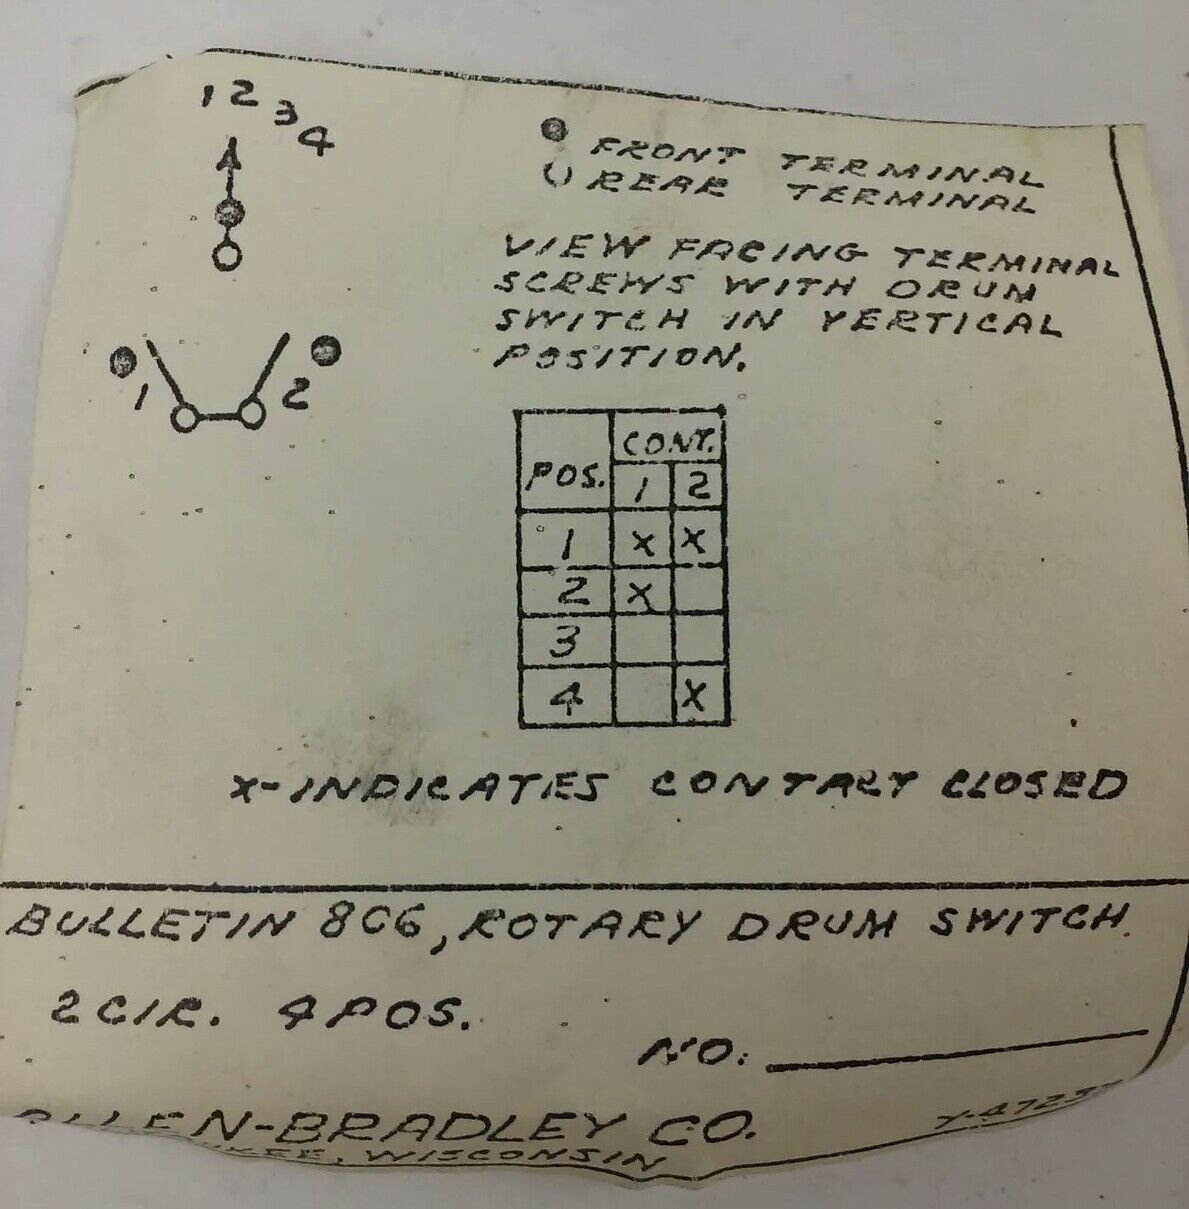 1 2 3 4
FRONT TERMINAL
REAR TERMINAL
VIEW FACING TERMINAL
SCREWS WITH DRUM
SWITCH IN VERTICAL
POSITION.
1 2
POS. CONT.
1 2
1 X X
2 X
3
4 X
X-INDICATES CONTACT CLOSED
BULLETIN 806, ROTARY DRUM SWITCH
2 CIR. 4 POS.
NO.
ALLEN-BRADLEY CO.
WISCONSIN